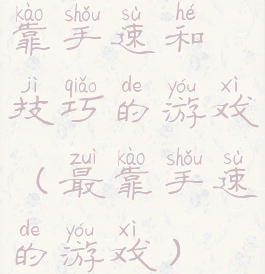 kào shǒu sù hé
靠手速和
jì qiǎo de yóu xì
技巧的游戏
zuì kào shǒu sù
（最靠手速
de yóu xì
的游戏）